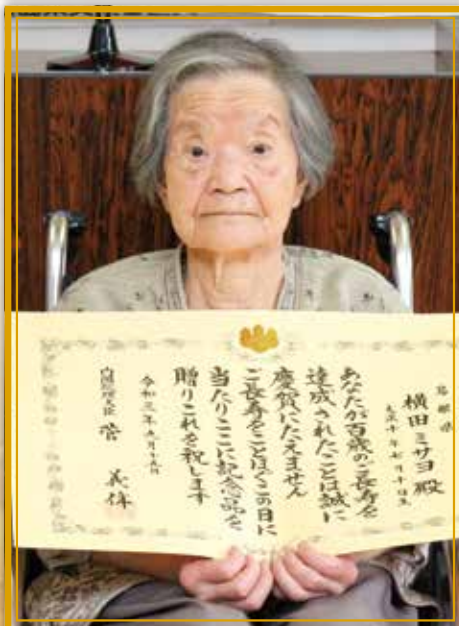 島根県
横田ミサヨ殿
大正十年七月十日生
あなたが百歳のご長寿を
達成されたことは誠に
慶賀にたえません
ご長寿をことほぐこの日に
当たりここに記念品を
贈りこれを祝します
令和三年九月十五日
内閣総理大臣 菅 義偉